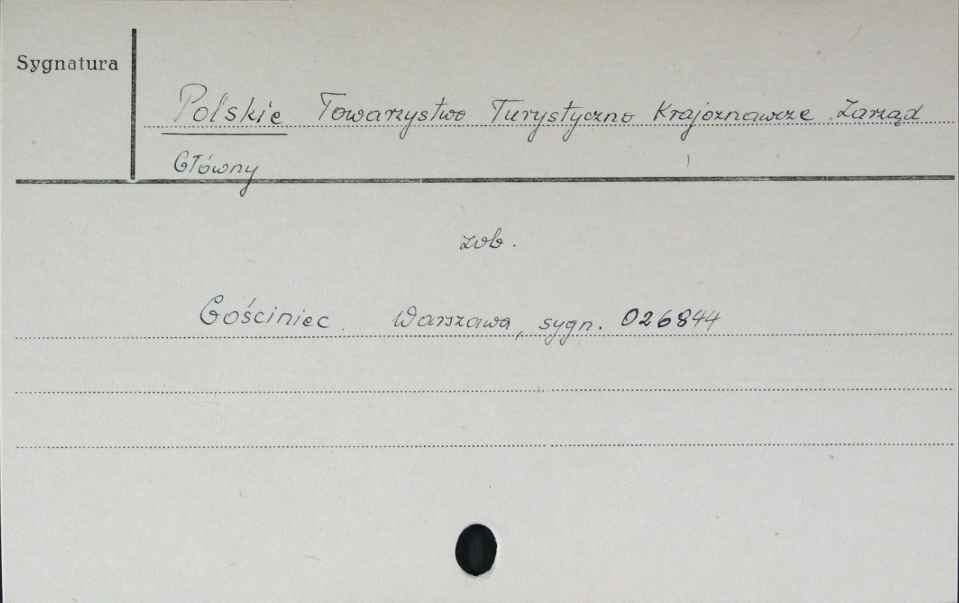 Sygnatura
Polskie Towarzystwo Turystyczno Krajoznawcze. Zarząd
Główny
zob.
Gościniec. Warszawa, sygn. 026844